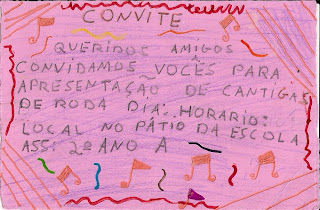 CONVITE
QUERIDOS AMIGOS
CONVIDAMOS VOCÊS PARA
APRESENTAÇÃO DE CANTIGAS
DE RODA DIA: HORARIO:
LOCAL NO PÁTIO DA ESCOLA
ASS: 2º ANO A